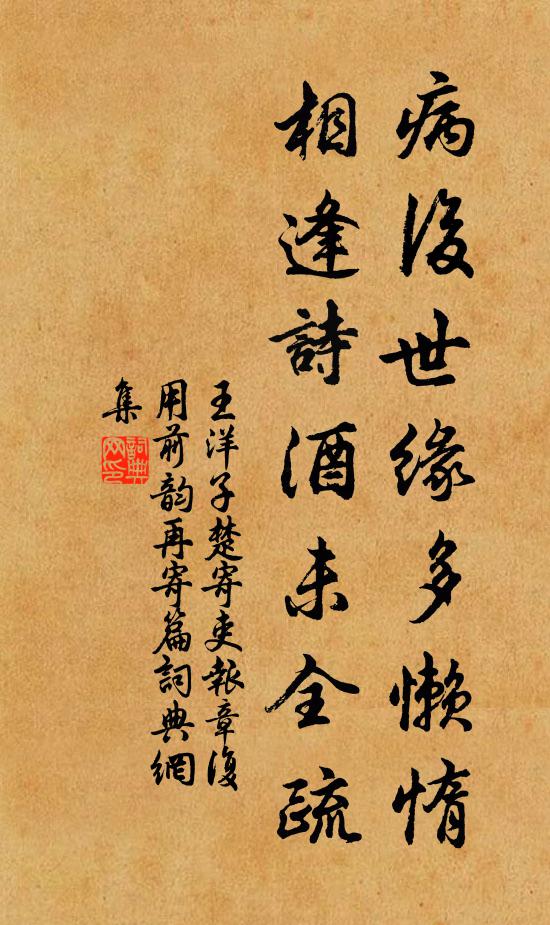 病後世緣多懶惰
相逢詩酒未全疏
王洋子楚寄吏報章復
用前韵再寄篇詞典網
集
詞典網印